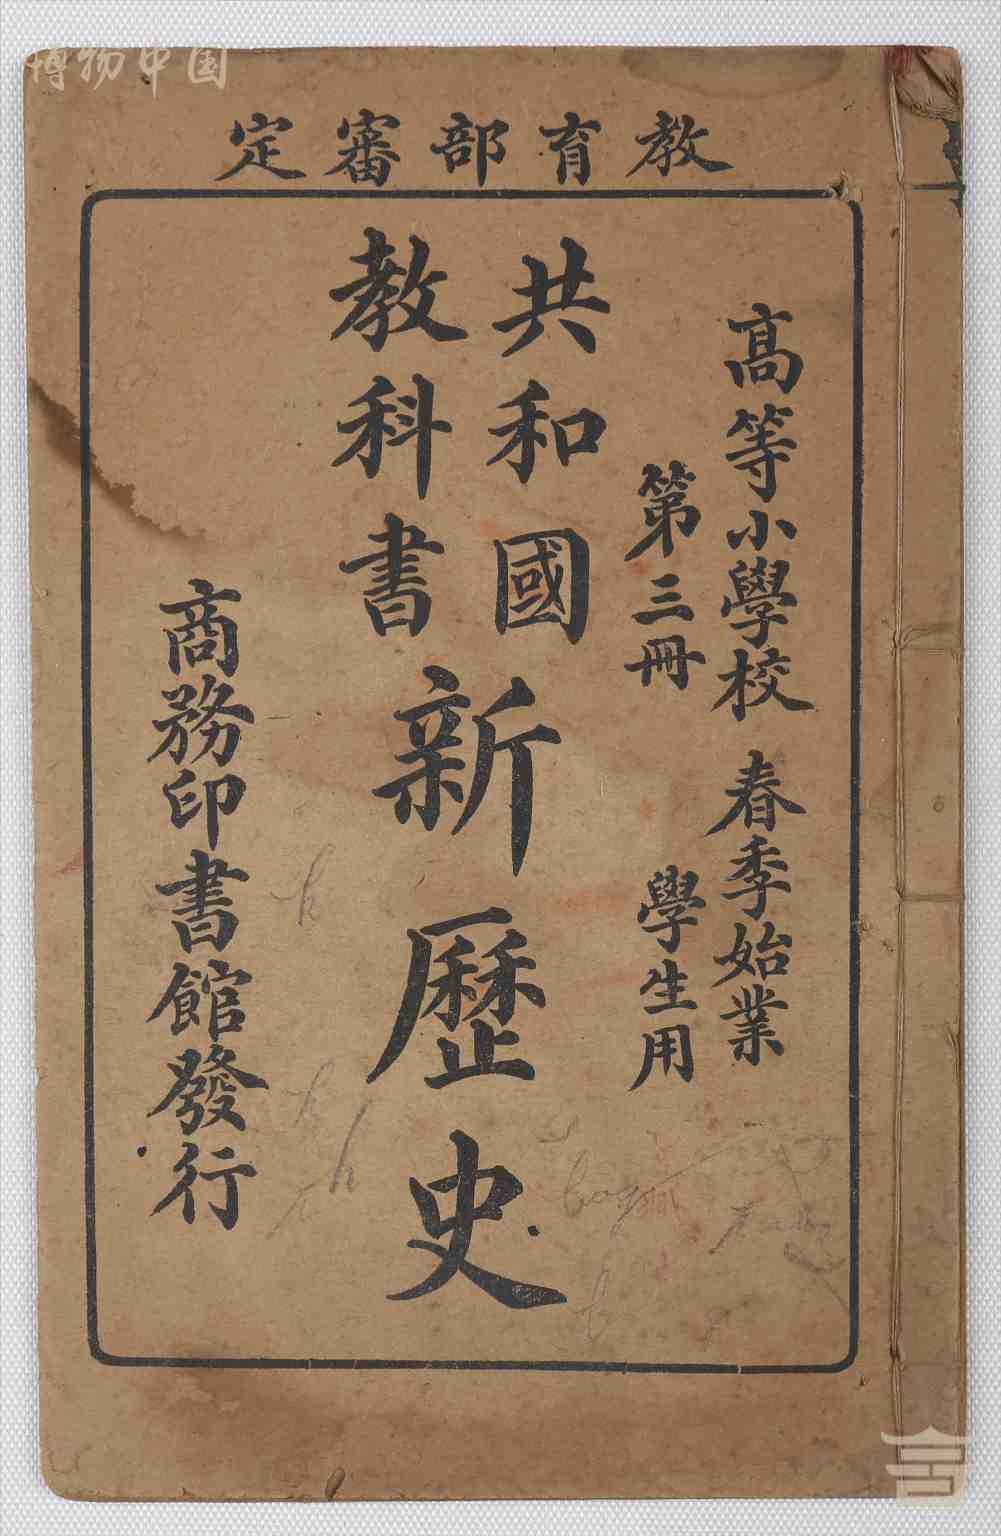 博物中国
教育部審定
高等小學校 春季始業
第三冊 學生用
共和國
教科書
新歷史
商務印書館發行